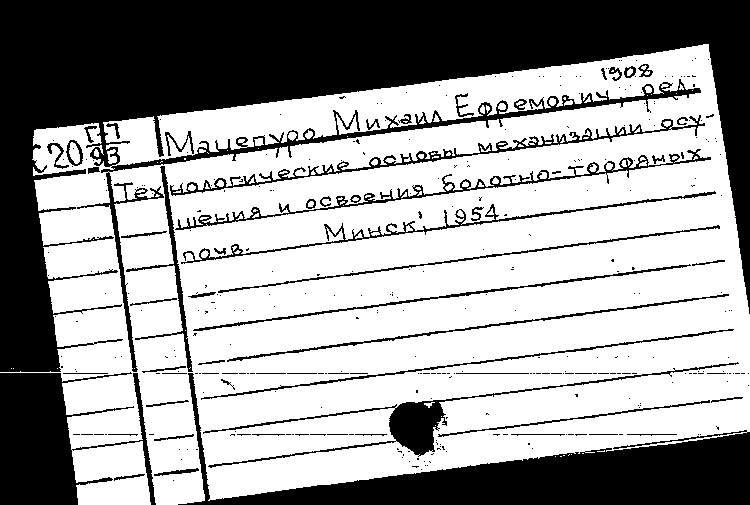 1908
С20 Г-7/93 Мацепуро, Михаил Ефремович, ред.
Технологические основы механизации осу-
шения и освоения болотно-торфяных
почв. Минск, 1954.